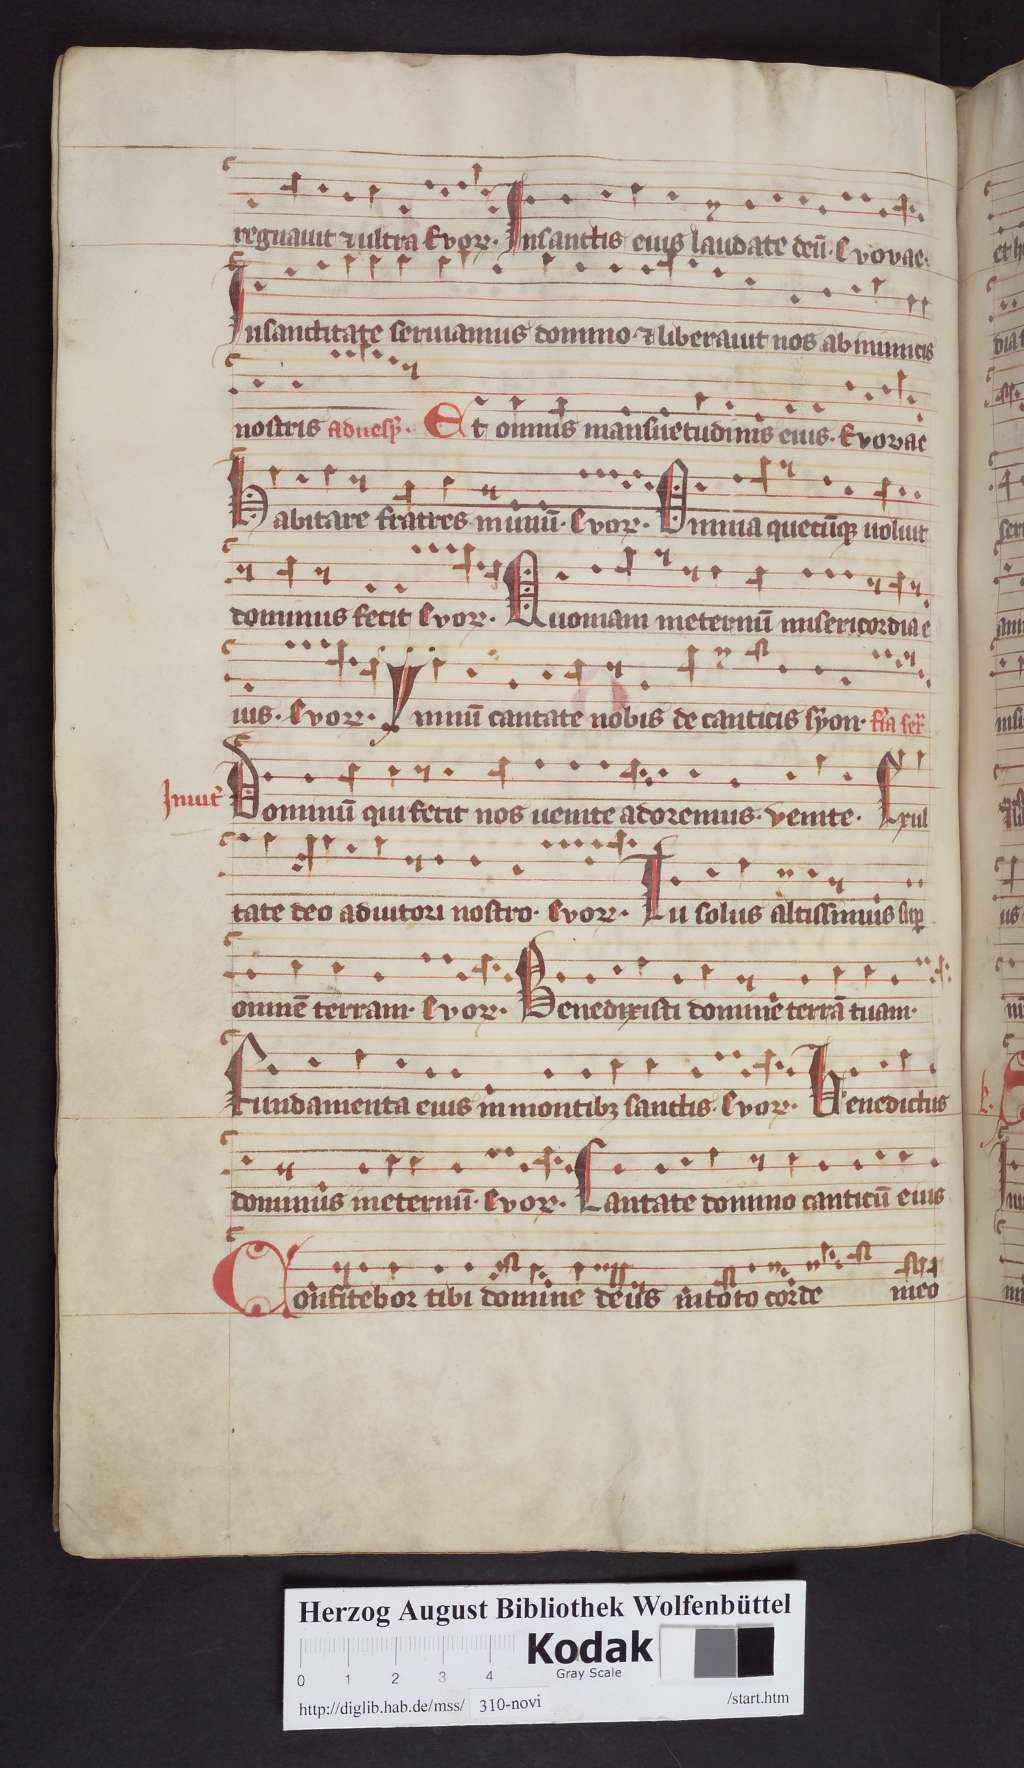 regnauit ⁊ ultra Euoꝛ. Insanctis eius laudate deū. Euouae.
Insanctitate seruiamus domino. ⁊ liberauit nos ab inimicis
nostris aduesp̄. Et omnis mansuetudinis eius. Euouae
Habitare fratres inunū. Euoꝛ. Omnia quecūqꝫ uoluit
dominus fecit Euoꝛ. Quoniam ineternū misericordia e
ius. Euoꝛ. Ymnū cantate nobis de canticis syon.
Inuit̄ Dominū qui fecit nos uenite adoremus. venite. Exul
tate deo adiutori nostro. Euoꝛ. Tu solus altissimus sup̄
omnē terram. Euoꝛ. Benedixisti domine terrā tuam.
Fundamenta eius inmontibꝫ sanctis. Euoꝛ. Benedictus
dominus ineternū. Euoꝛ. Cantate domino canticū eius
Confitebor tibi domine deus in toto corde meo
Herzog August Bibliothek Wolfenbüttel
Kodak
Gray Scale
0 1 2 3 4
http://diglib.hab.de/mss/ 310-novi /start.htm